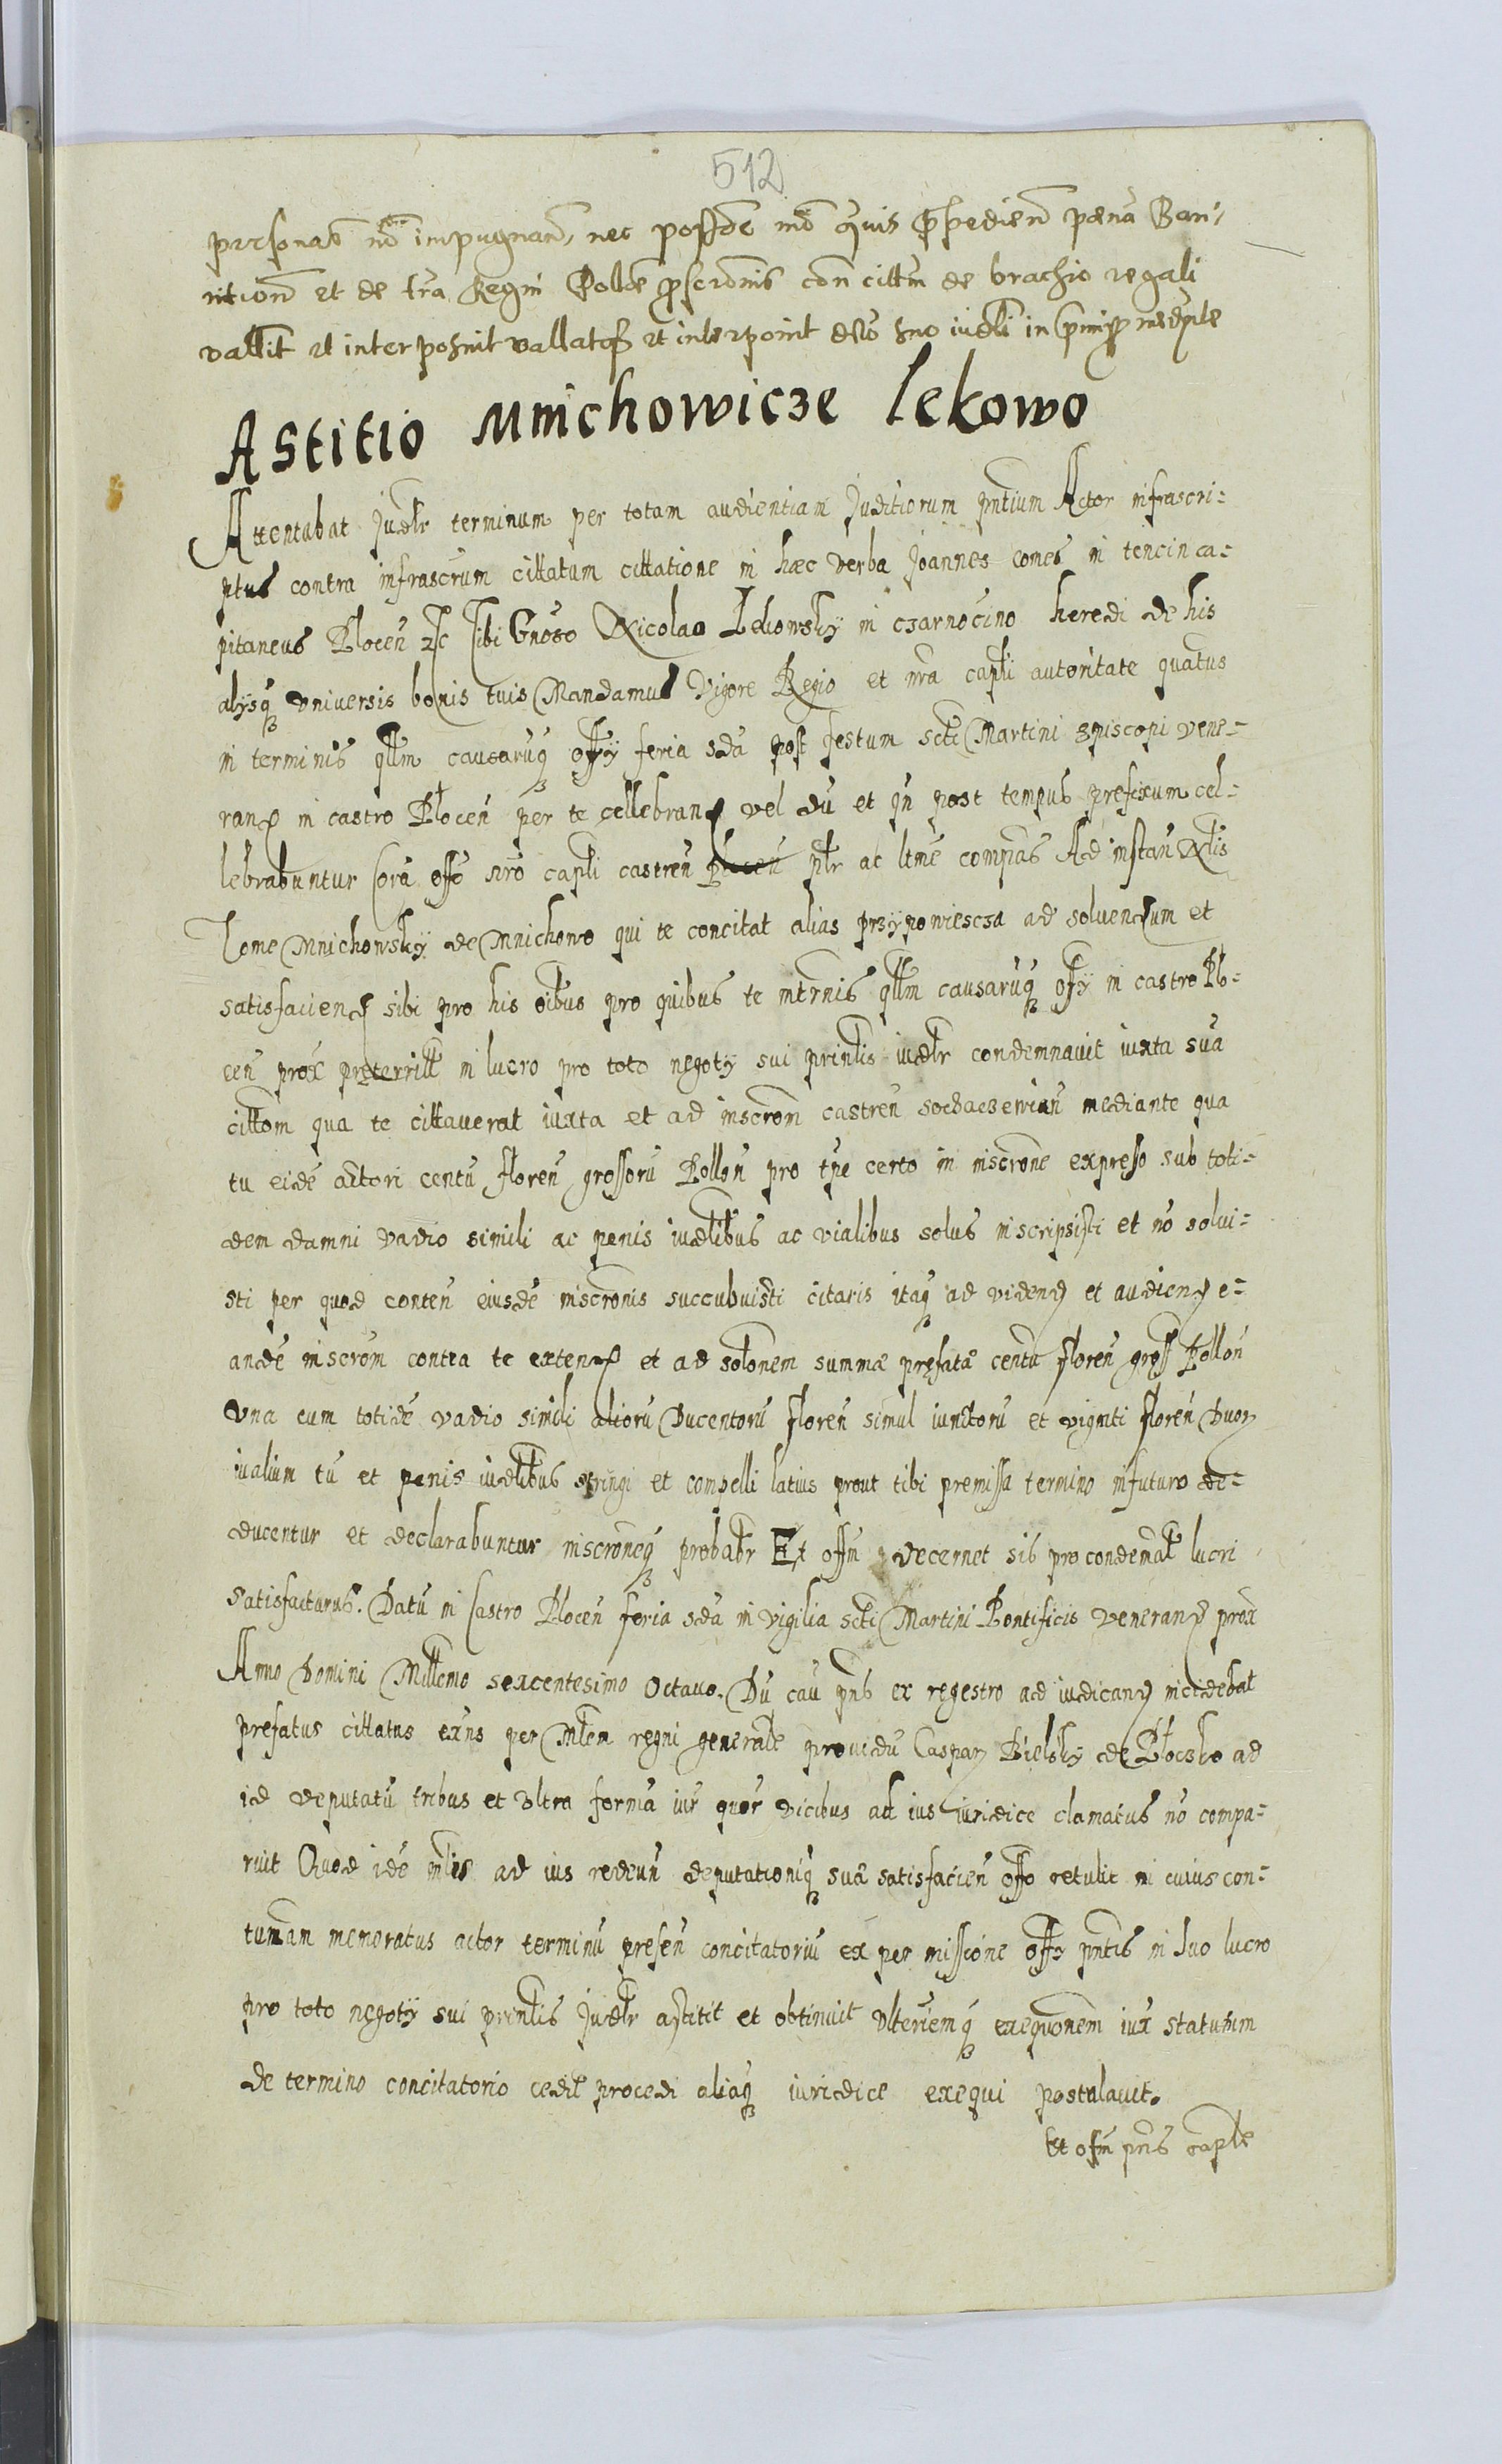 512
personas nō impugnan̄, nec possde mō quis
nition̄ et de tra Regni de brachio regali
vallit et interposuit et interponit
Astitio Mnichowicze lekowo
Attentabat Judlr terminum per totam audientiam Juditiorum pntium Actor infrascri-
ptus contra infrascrum cittatum cittatione in hæc verba Joannes comes in tencin ca-
pitaneus Plocen̄ Tibi Gnoso Nicolao Lekowskÿ in czarnocino heredi de his
alysq₃ vniversis bonis tuis Mandamus Vigore Regio et nra capli autoritate quatus
in terminis qllm causaruq₃ offÿ feria sda post festum scti Martini Episcopi vene-
rand in castro Plocen̄ per te cellebrand vel dū et qn post tempus prefixum cel-
lebrabuntur Corā offo nro capli castren̄ Plocen̄ plr ac ltme compās Ad instan Nlis
Tome Mnichowskÿ de Mnichowo qui te concitat alias przypowiescza ad soluendum et
satisfaciend sibi pro his oibus pro quibus te in trnis qllm causaruq₃ ofÿ in castro Plo-
cen̄ prox preterritt in lucro pro toto negoty sui prinlis iudlr condemnavit iuxta suā
cittom qua te cittaverat iuxta et ad inscrom castren̄ sochaczewien̄ mediante qua
tu eidē actori centū floren̄ grossorū Pollon̄ pro tpe certo in inscrone expresso sub toti-
dem damni vadio simili ac penis iudlibus ac vialibus solus inscripsisti et nō solui-
sti per quod conten̄ eiusdē inscronis succubuisti citaris itaq₃ ad vidend et audiend e-
andē inscrom contra te extend et ad solonem summæ pręfatæ centū floren̄ gross Pollon̄
Vna cum totidē vadio simili aliorū Ducentorū floren̄ simul iunctorū et viginti floren̄ Duor
iualium tū et penis iudlibus stringi et compelli latius prout tibi premissa termino in futuro de-
ducentur et declarabuntur inscroneq₃ probabr Et offm decernet sis pro condemāte lucri
Satisfacturus. Datū in Castro Plocen̄ feria sda in vigilia scti Martini Pontificis venerand prox
Anno Domini Millemo sexcentesimo Octauo. Dū cau pns ex regestro ad iudicand incidebat
prefatus cittatus exns per Mlem regni generale providū Caspar Bielskÿ de Płoczko ad
id deputatū tribus et vltra formā iur quor vicibus ad ius iuridice clamatus nō compa-
ruit Quod idē mlis ad ius redeun̄ deputationiq₃ suæ satisfacien̄ offo retulit in cuius con-
tumam memoratus actor terminū presen̄ concitatoriū ex per missione offÿ pntis in suo lucro
pro toto negoty sui prinlis Judlr astitit et obtinuit Vlteriemq₃ exequonem iux statutum
de termino concitatorio cedi procedi aliaq₃ iuridice exequi postulavit.
Et ofm pns caple